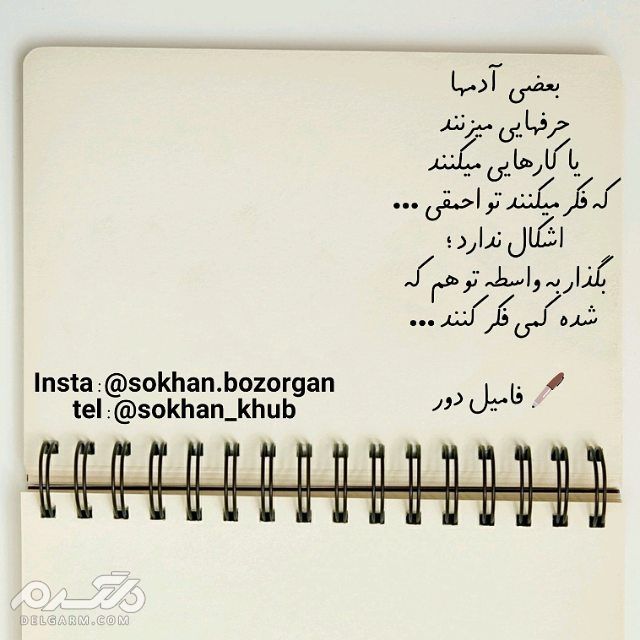 بعضی آدمها
حرفهایی میزنند
یا کارهایی میکنند
که فکر میکنند تو احمقی ...
اشکال ندارد ؛
بگذار به واسطه تو هم که
شده کمی فکر کنند ...
فامیل دور
Insta : @sokhan.bozorgan
tel : @sokhan_khub
دلگرم
DELGARM.COM